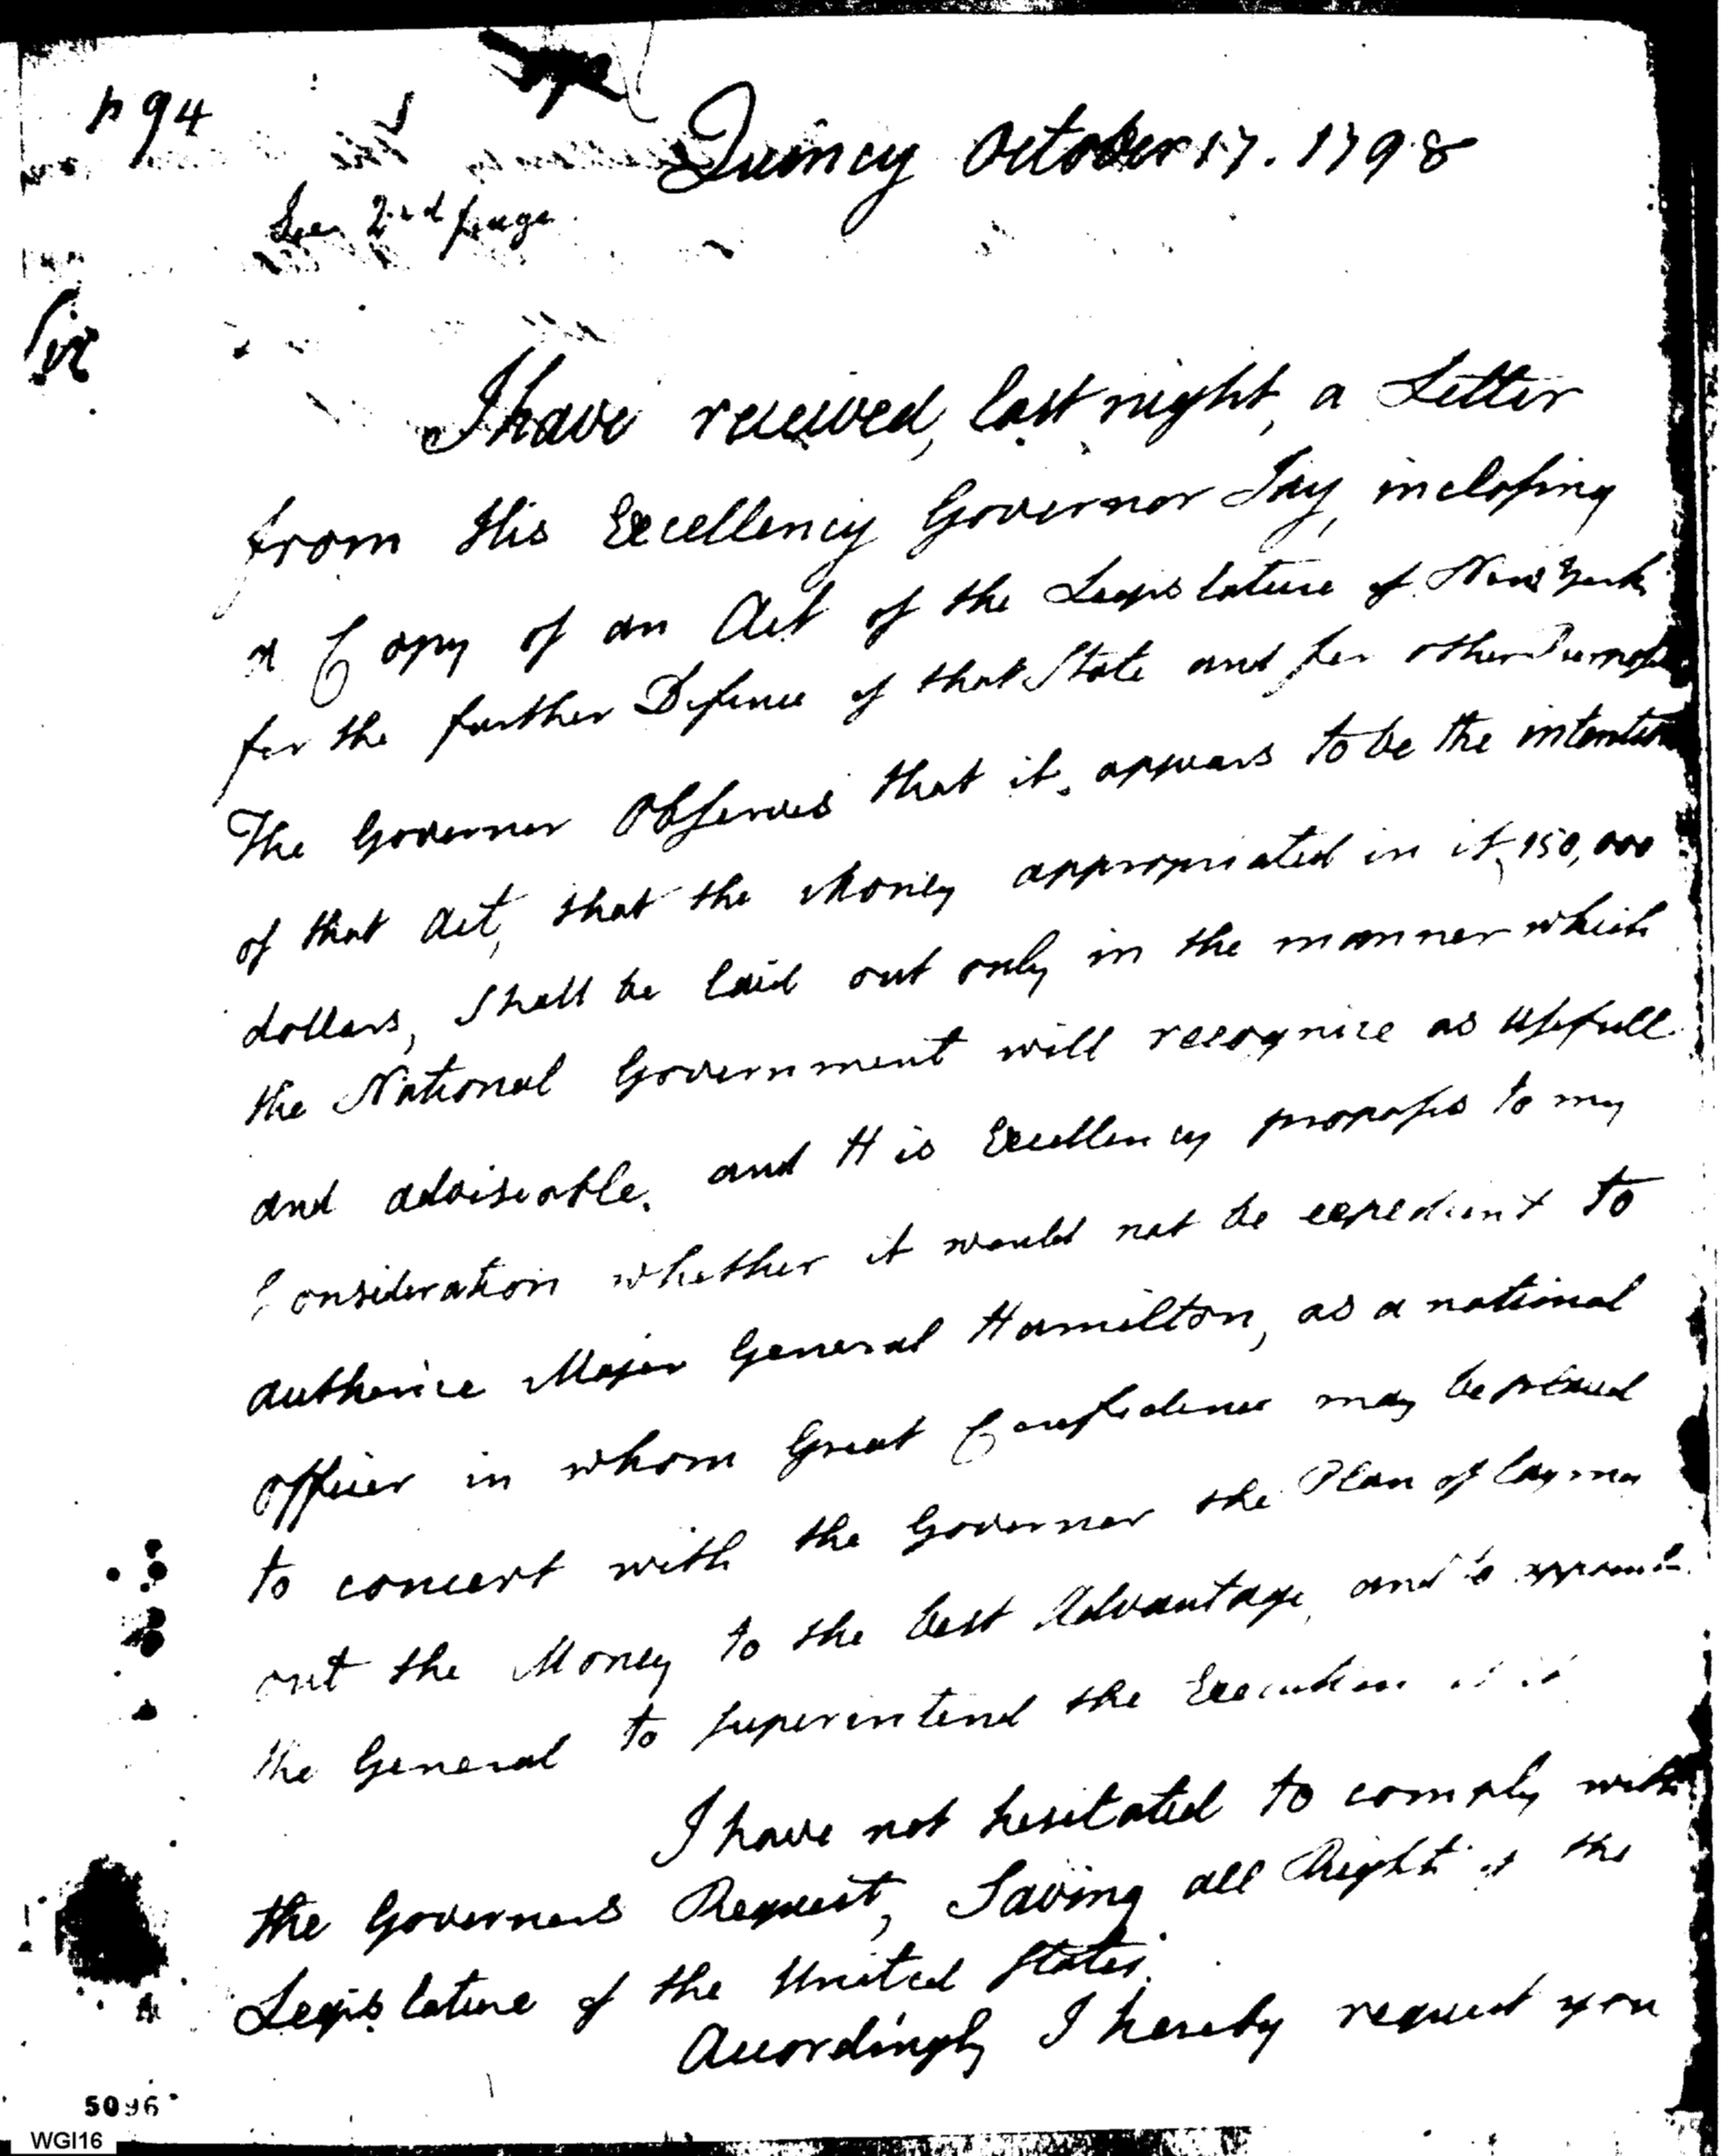 p 94
Quincy October 17. 1798
See 2nd page
Sir
I have received, last night, a Letter
from His Excellency Governor Jay, inclosing
a Copy of an Act of the Legislature of New York
for the further Defence of that State and for other Purposes
The Governor observes that it appears to be the intention
of that Act, that the Money appropriated in it, 150,000
dollars, shall be laid out only in the manner which
the National Government will recognize as usefull
and adviseable. and His Excellency proposes to my
Consideration whether it would not be expedient to
authorize Major General Hamilton, as a national
officer in whom Great Confidence may be placed
to concert with the Governor the Plan of laying
out the Money to the best Advantage, and to appoint
the General to superintend the Execution of it
I have not hesitated to comply with
the Governors Request, Saving all Right of the
Legislature of the United States.
Accordingly I hereby request you
5096
WGI16